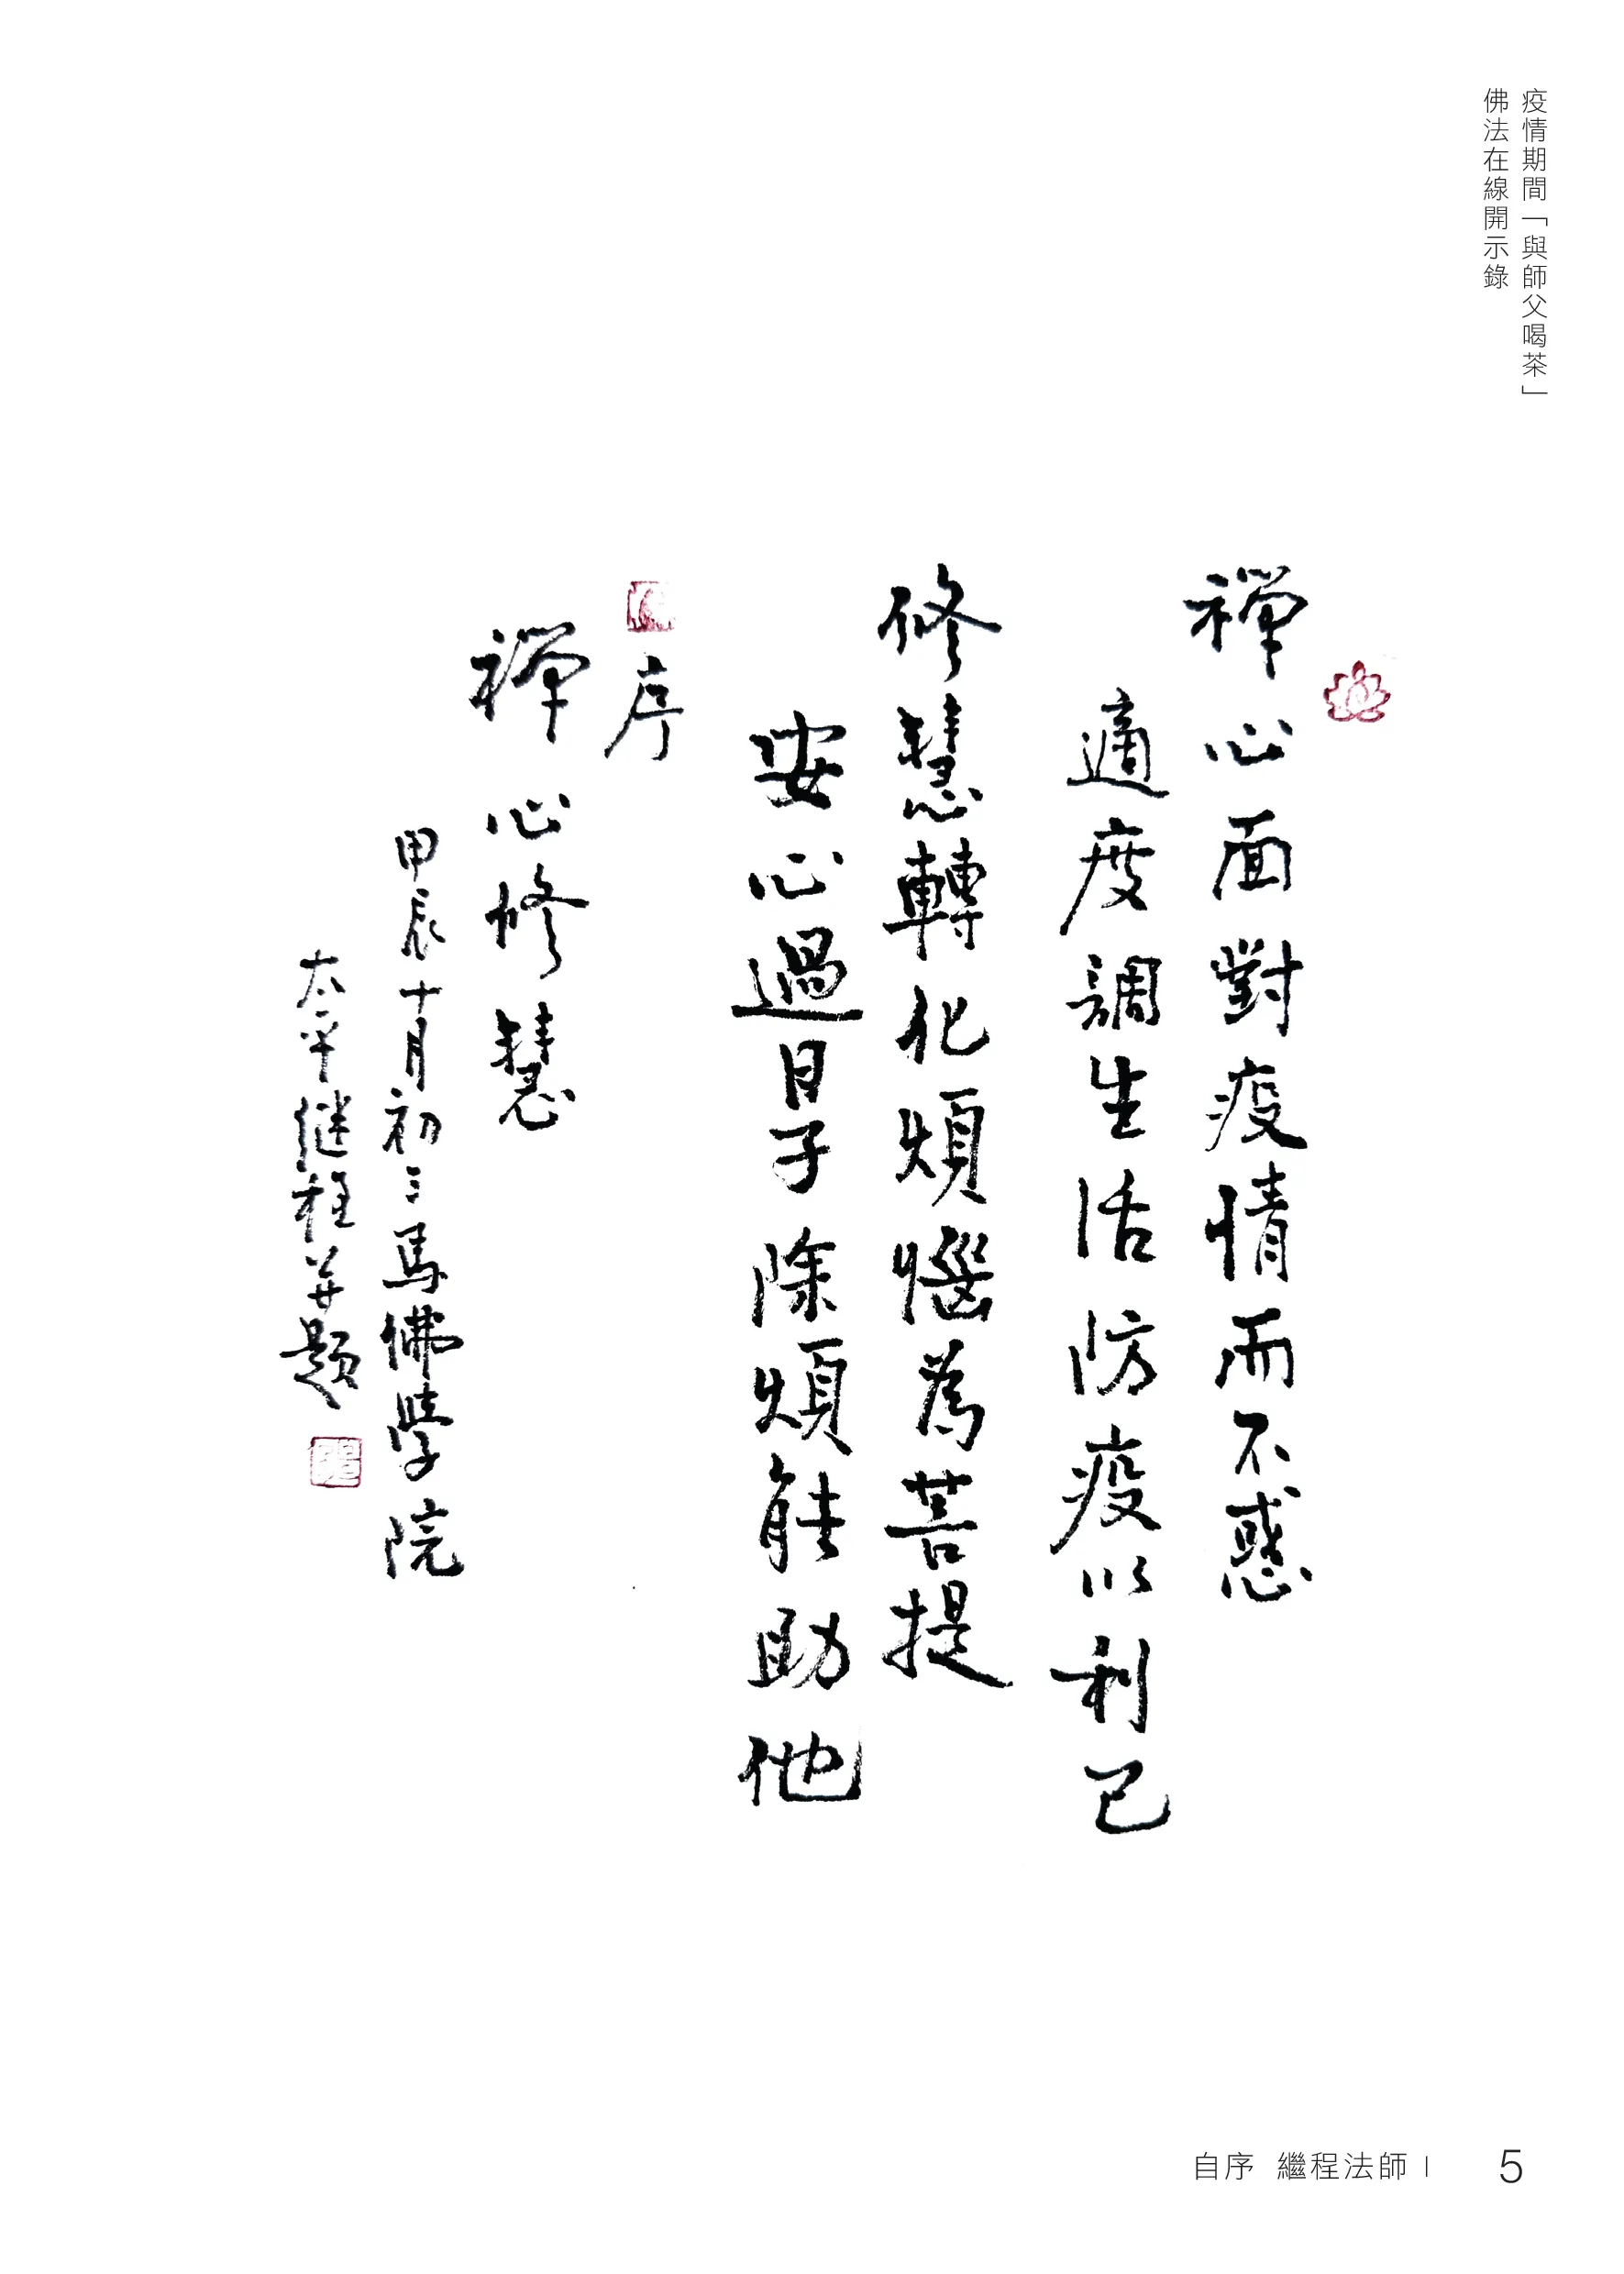 疫情期間「與師父喝茶」
佛法在線開示錄
禪心面對疫情而不惑
適度調生活防疫以利己
修慧轉化煩惱為菩提
安心過日子除煩能助他
序
禪心修慧
甲辰十月初三馬佛學院
太平继程并题
自序 繼程法師 | 5